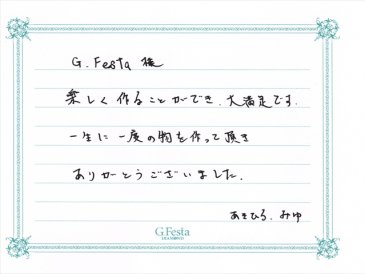 G.Festa 様
楽しく作ることができ、大満足です。
一生に一度の物を作って頂き
ありがとうございました。
あきひろ、みゆ
G.Festa
DIAMOND